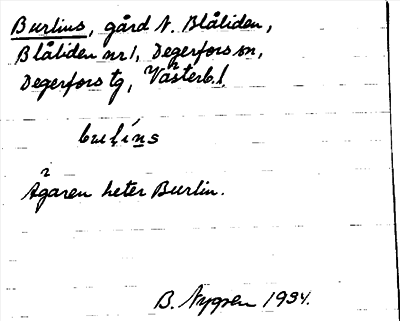 Burlius, gård N. Blåliden,
Blåliden nr 1, Degerfors sn,
Degerfors tg, Västerb. l.
Ägaren heter Burlin.
B. Nygren 1934.